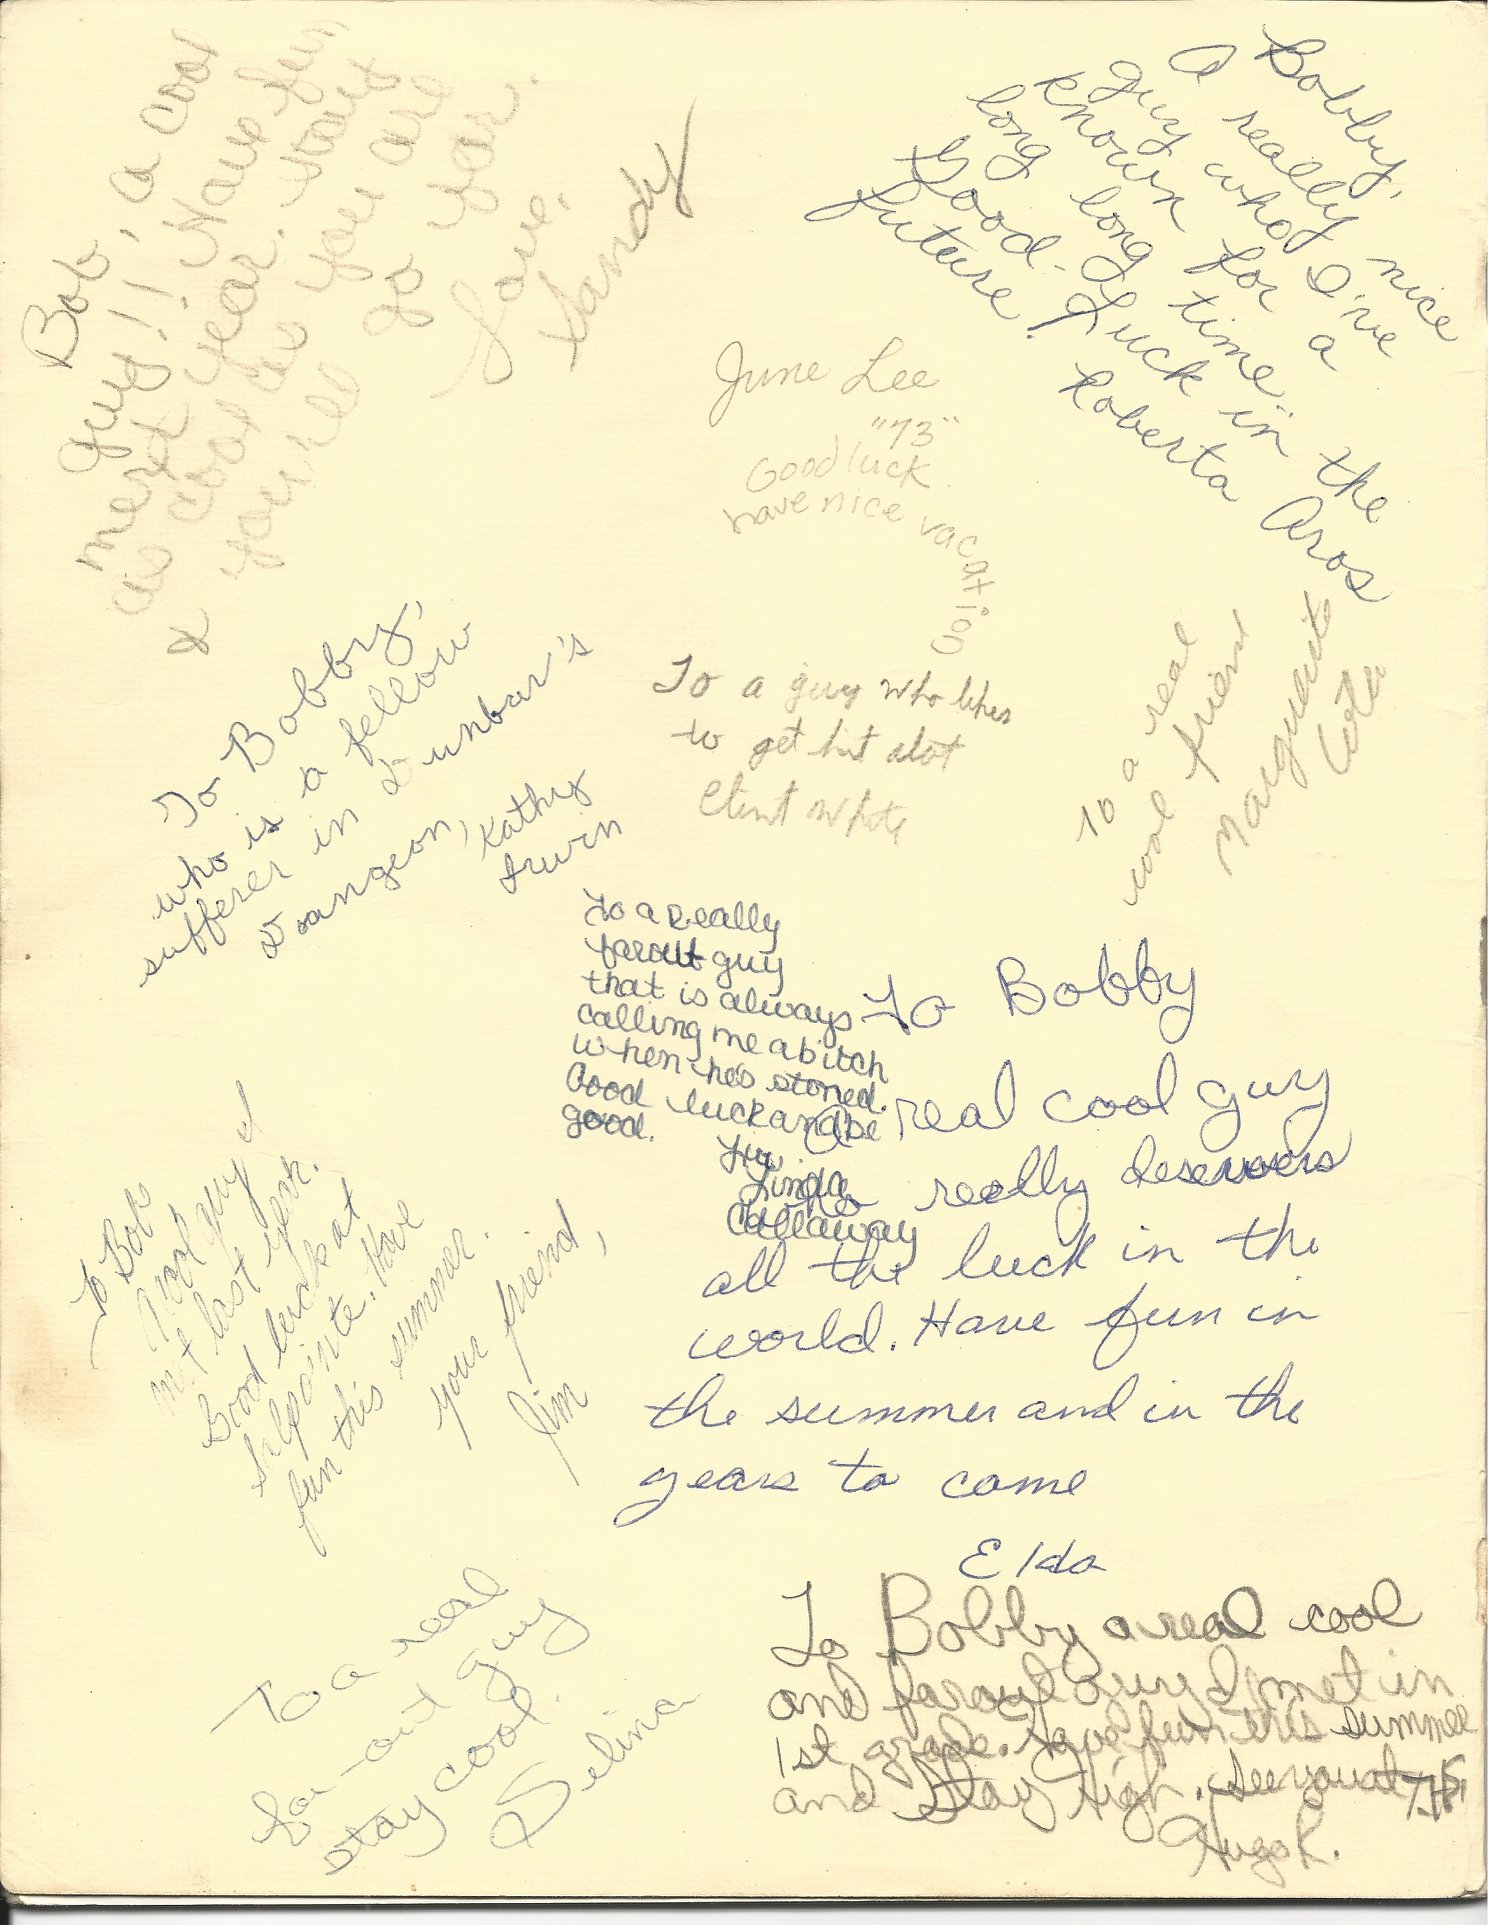 Bob, a cool
guy!! Have fun
next year. Want
as cool as you are
& you'll go far.
Love,
Sandy
Bobby,
A really nice
guy who I've
known for a
long long time.
Good-Luck in the
future!
Roberta Aros
June Lee
"73"
Good luck
have nice vacation
To Bobby,
who is a fellow
sufferer in Dunbar's
Doangeon,
Kathy
Irwin
To a guy who likes
to get hit alot
Clint White
To a real
cool friend
Marguerite
Cota
To a Really
farout guy
that is always
calling me a bitch
when he's stoned.
Good luck and be
good.
Luv
Linda
Callaway
To Bobby
a real cool guy
who really deserves
all the luck in the
world. Have fun in
the summer and in the
years to come
Elda
To Bob
A cool guy I
met last year.
Good luck at
Salpointe. Have
fun this summer.
Your friend,
Jim
To a real
far-out guy
stay cool.
Selina
To Bobby a real cool
and farout guy I met in
1st grade. Have fun this summer
and Stay High. See you at T.H.S.
Hugo R.